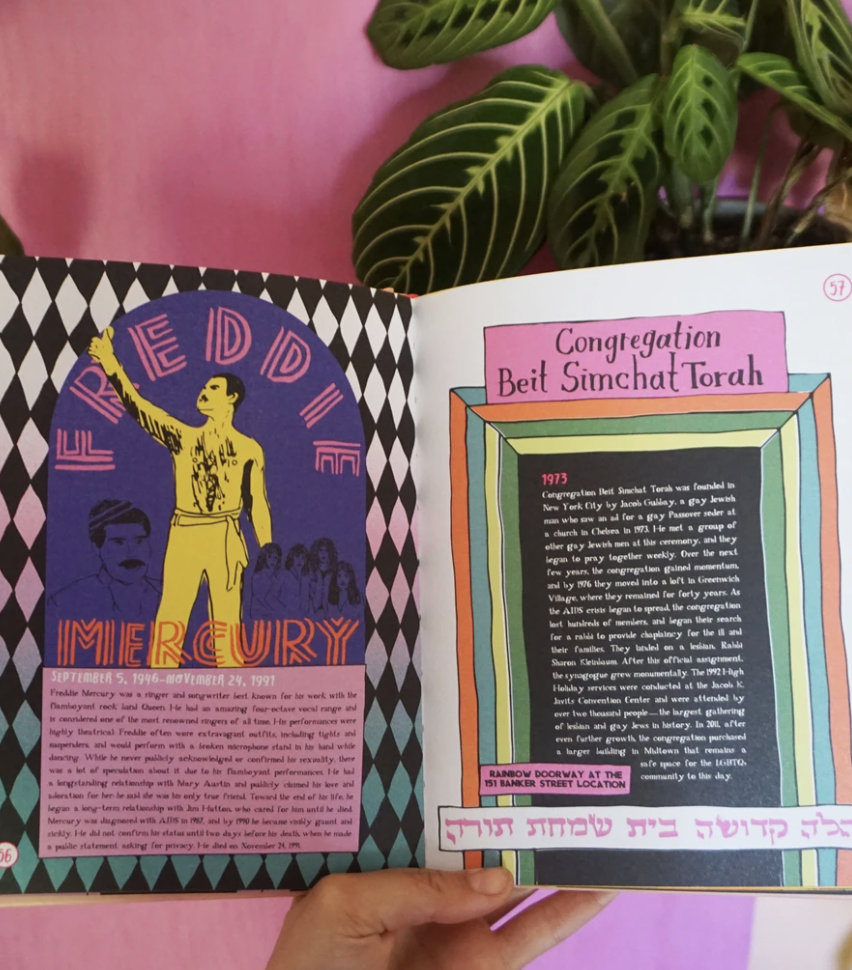 FREDDIE
MERCURY
SEPTEMBER 5, 1946–NOVEMBER 24, 1991
Freddie Mercury was a singer and songwriter best known for his work with the
flamboyant rock band Queen. He had an amazing four-octave vocal range and
is considered one of the most renowned singers of all time. His performances were
highly theatrical. Freddie often wore extravagant outfits, including tights and
suspenders, and would perform with a broken microphone stand in his hand while
dancing. While he never publicly acknowledged or confirmed his sexuality, there
was a lot of speculation about it due to his flamboyant performances. He had
a longstanding relationship with Mary Austin and publicly claimed his love and
adoration for her; he said she was his only true friend. Toward the end of his life, he
began a long-term relationship with Jim Hutton, who cared for him until he died.
Mercury was diagnosed with AIDS in 1987, and by 1990 he became visibly gaunt and
sickly. He did not confirm his status until two days before his death, when he made
a public statement asking for privacy. He died on November 24, 1991.
56
57
Congregation
Beit Simchat Torah
1973
Congregation Beit Simchat Torah was founded in
New York City by Jacob Gubbay, a gay Jewish
man who saw an ad for a gay Passover seder at
a church in Chelsea in 1973. He met a group of
other gay Jewish men at this ceremony, and they
began to pray together weekly. Over the next
few years, the congregation gained momentum,
and by 1976 they moved into a loft in Greenwich
Village, where they remained for forty years. As
the AIDS crisis began to spread, the congregation
lost hundreds of members, and began their search
for a rabbi to provide chaplaincy for the ill and
their families. They landed on a lesbian, Rabbi
Sharon Kleinbaum. After this official assignment,
the synagogue grew monumentally. The 1992 High
Holiday services were conducted at the Jacob K.
Javits Convention Center and were attended by
over two thousand people—the largest gathering
of lesbian and gay Jews in history. In 2011, after
even further growth, the congregation purchased
a larger building in Midtown that remains a
safe space for the LGBTQ+
community to this day.
RAINBOW DOORWAY AT THE
151 BANKER STREET LOCATION
קדושה בית שמחת תורה